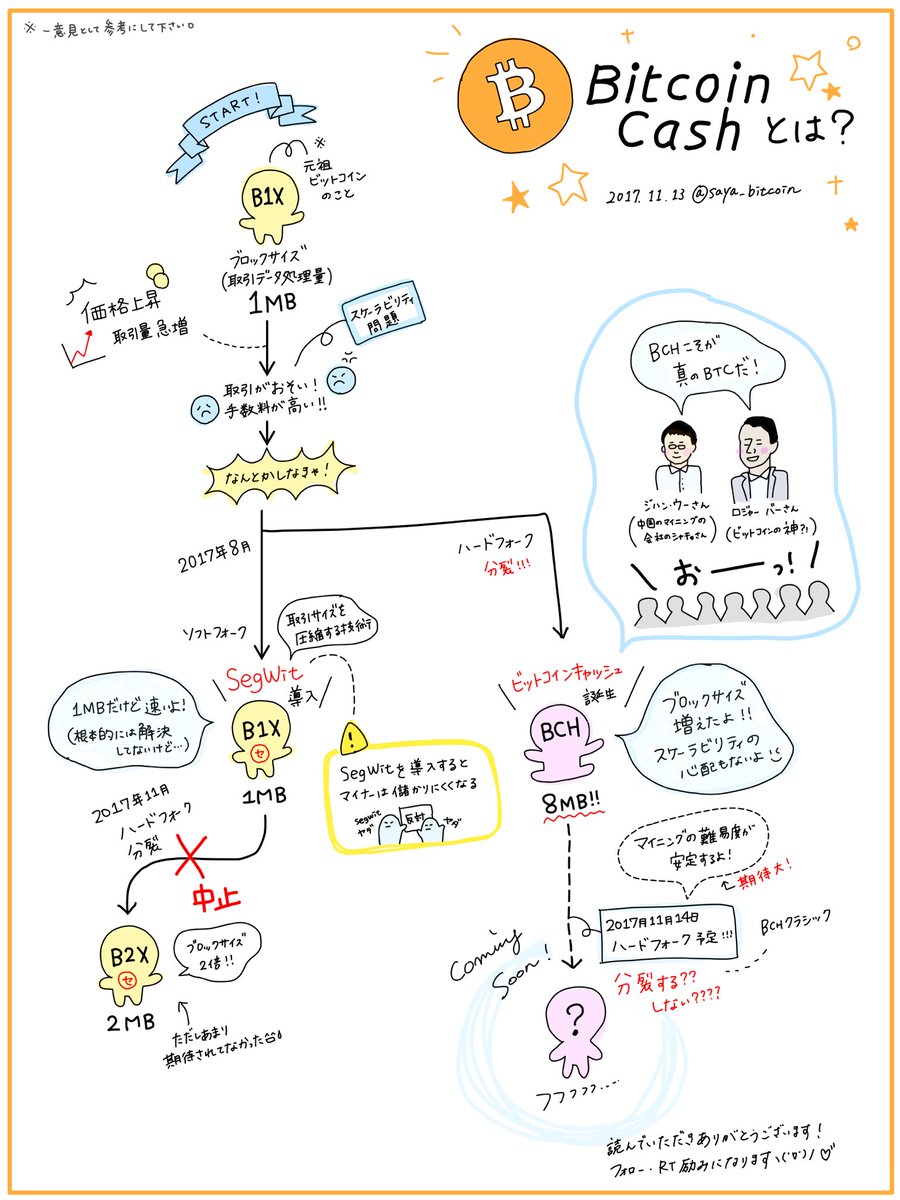 ※ 一意見として参考にして下さい。
Bitcoin
Cash とは?
2017.11.13 @saya_bitcoin
START!
※
元祖
ビットコイン
のこと
B1X
ブロックサイズ
(取引データ処理量)
1MB
価格上昇
取引量急増
スケーラビリティ
問題
取引がおそい!
手数料が高い!!
なんとかしなきゃ!
2017年8月
ハードフォーク
分裂!!!
ソフトフォーク
取引サイズを
圧縮する技術
SegWit
導入
1MBだけど速いよ!
(根本的には解決
してないけど…)
B1X
セ
1MB
SegWitを導入すると
マイナーは儲かりにくくなる
segwit
ヤダ
反対
ヤダ
2017年11月
ハードフォーク
分裂
中止
B2X
セ
2MB
ブロックサイズ
2倍!!
ただしあまり
期待されてなかった
BCHこそが
真のBTCだ!
ジハン・ウーさん
(中国のマイニングの
会社のシャチョさん)
ロジャー バーさん
(ビットコインの神?!)
おーーっ!
ビットコインキャッシュ
誕生
BCH
8MB!!
ブロックサイズ
増えたよ!!
スケーラビリティの
心配もないよ
マイニングの難易度が
安定するよ!
期待大!
2017年11月14日
ハードフォーク予定!!!
BCHクラシック
分裂する??
しない????
Coming
Soon!
?
フフフフフ……
読んでいただきありがとうございます!
フォロー・RT励みになりますヽ('ω')ノ♡